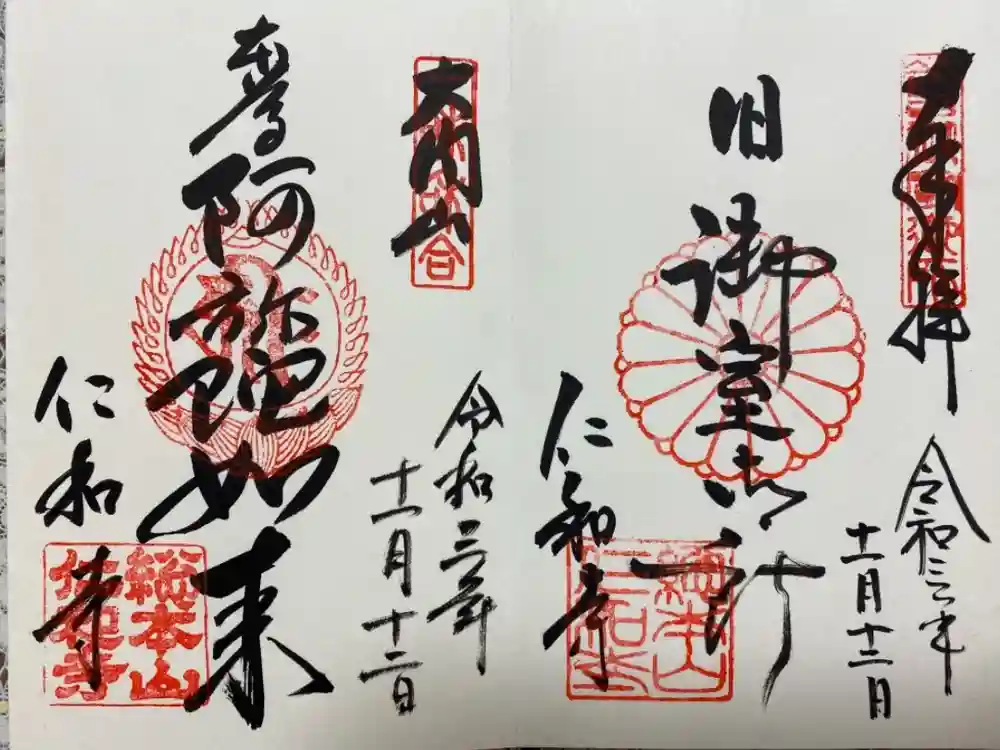 奉拝
令和三年
十一月十二日
旧御室御所
仁和寺
総本山
仁和寺
大内山
令和三年
十一月十二日
阿弥陀如来
仁和寺
総本山
仁和寺